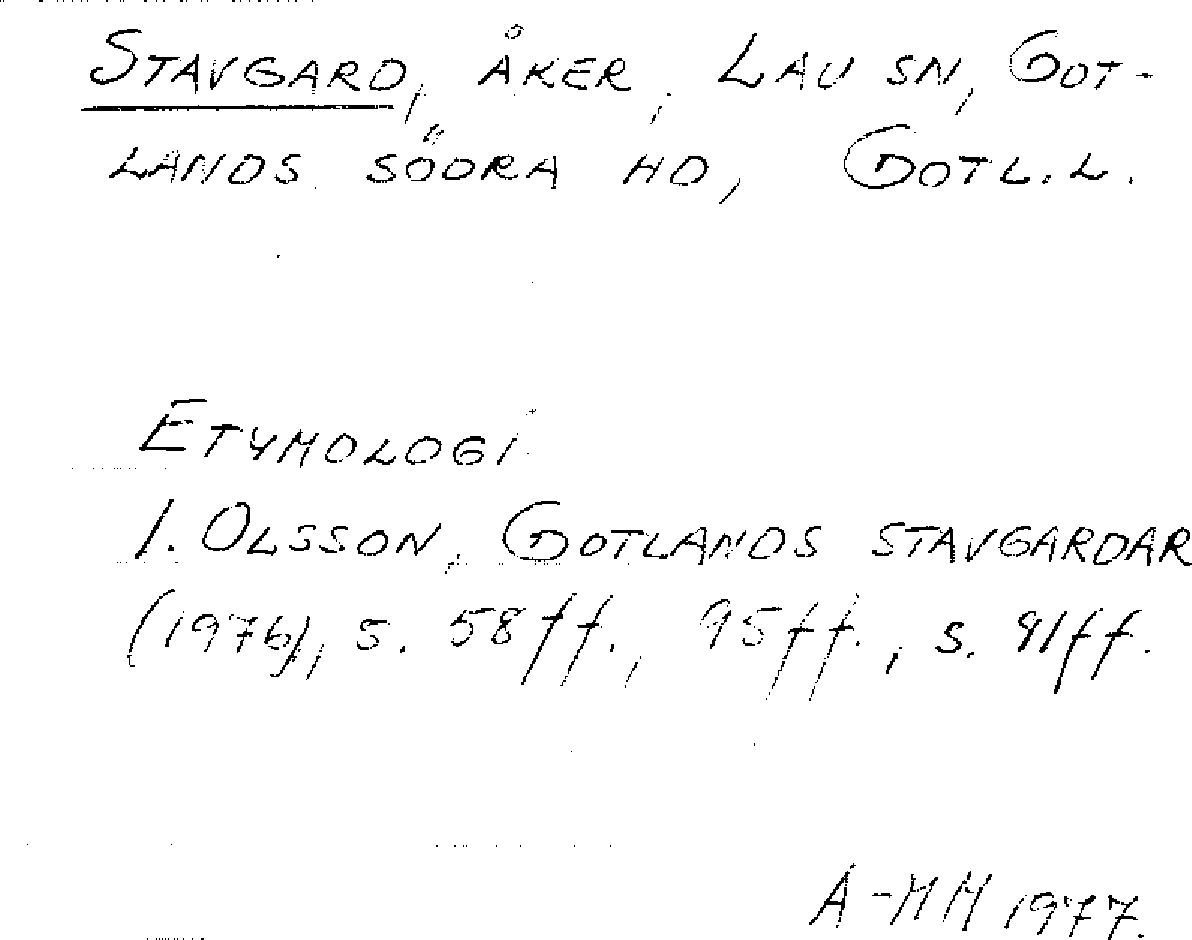 STAVGARD, ÅKER, LAU SN, GOT-
LANDS SÖDRA HD, GOTL.L.
ETYMOLOGI
I. OLSSON, GOTLANDS STAVGARDAR
(1976), S. 58ff., 95ff., S. 91ff.
A-MH 1977.